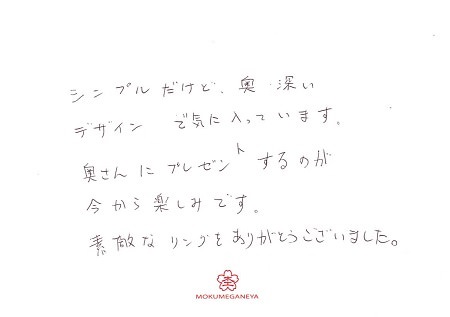 シンプルだけど、奥深い
デザインで気に入っています。
奥さんにプレゼントするのが
今から楽しみです。
素敵なリングをありがとうございました。
MOKUMEGANEYA